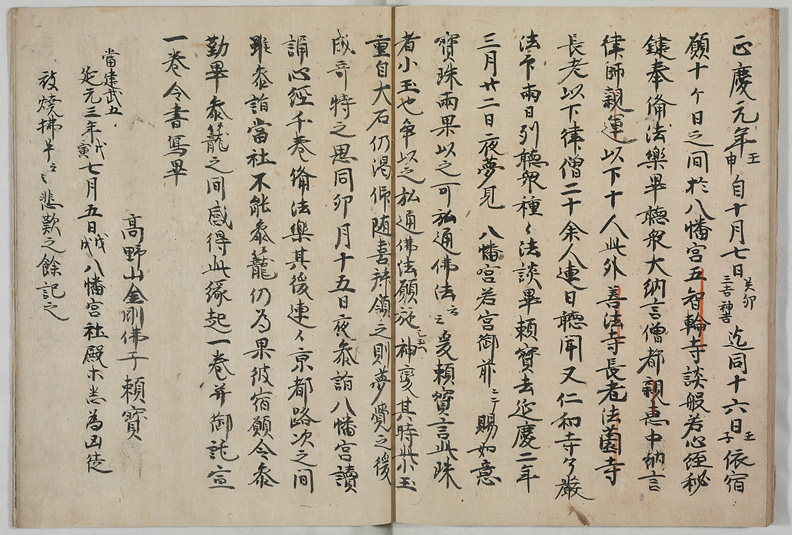 正慶元年壬申自十月七日癸卯三吉神吉迄同十六日壬子依宿
願十ケ日之間於八幡宮五智輪寺談般若心経秘
鍵奉備法楽畢聴衆大納言僧都親恵中納言
律師親運以下十人此外善法寺長老法薗寺
長老以下律僧二十余人連日聴聞又仁和寺了厳
法印両日列聴衆種々法談畢頼宝去延慶二年
三月廿二日夜夢見八幡宮若宮御前ニテ賜如意
宝珠両果以之可弘通佛法云云爰頼宝言此珠
者小玉也争以之弘通佛法願施神変其時此小玉
重自大石仍渇仰随喜拝領之則夢覚之後
成奇特之思同卯月十五日夜参詣八幡宮読
誦心経千巻備法楽其後連々京都路次之間
雖参詣當社不能参籠仍為果彼宿願令参
勤畢参籠之間感得此縁起一巻并御託宣
一巻令書写畢
高野山金剛佛子頼宝
當建武五
延元三年戊寅七月五日戊戌八幡宮社殿等悉為凶徒
被焼拂畢々悲歎之餘記之